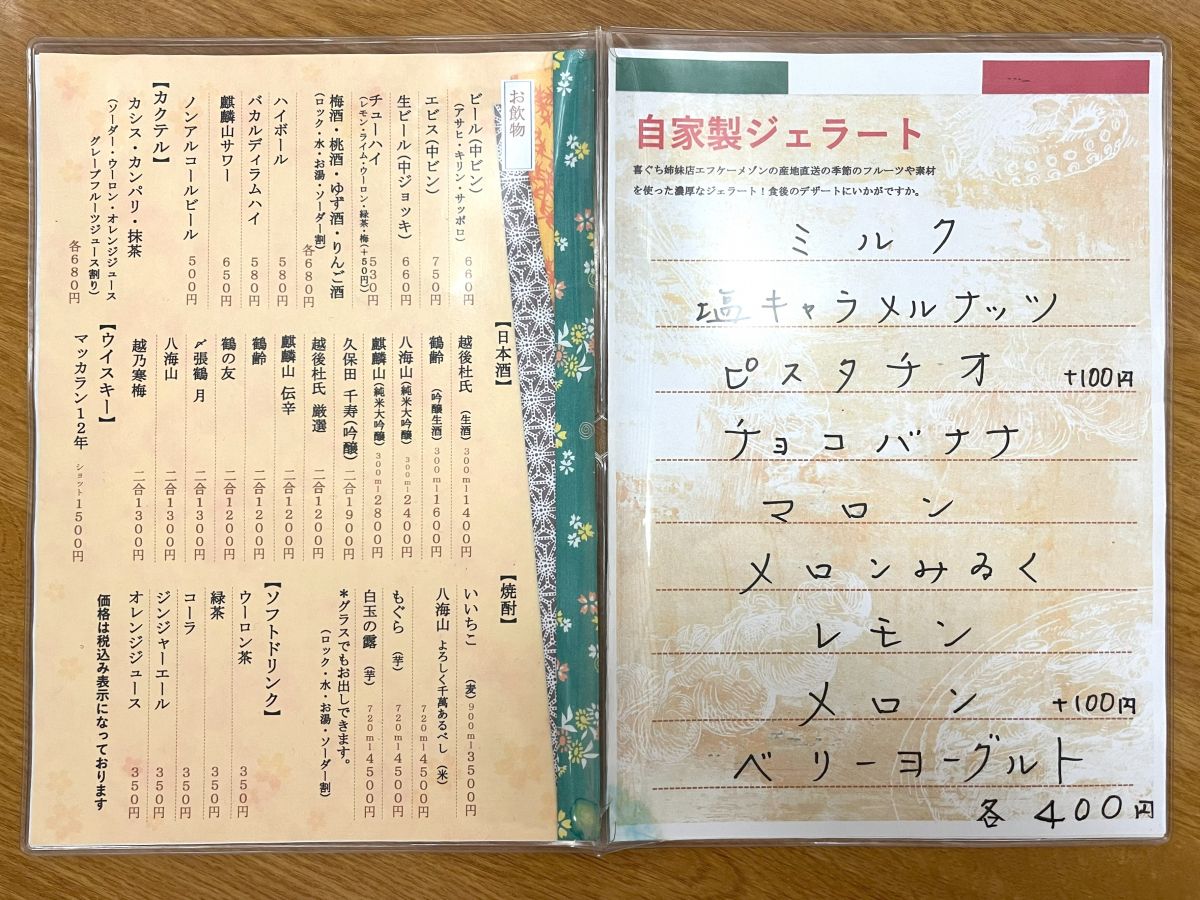 お飲物
ビール(中ビン) 660円
(アサヒ・キリン・サッポロ)
エビス(中ビン) 750円
生ビール(中ジョッキ) 660円
チューハイ 530円
(レモン・ライム・ウーロン・緑茶・梅(+50円))
梅酒・桃酒・ゆず酒・りんご酒
(ロック・水・お湯・ソーダー割) 各680円
ハイボール 580円
バカルディラムハイ 580円
麒麟山サワー 650円
ノンアルコールビール 500円
【カクテル】
カシス・カンパリ・抹茶
(ソーダー・ウーロン・オレンジジュース
グレープフルーツジュース割り)
各680円
【日本酒】
越後杜氏 (生酒) 300ml 1400円
鶴齢 (吟醸生酒) 300ml 1600円
八海山(純米大吟醸) 300ml 2400円
麒麟山(純米大吟醸) 300ml 2800円
久保田 千寿(吟醸) 二合1900円
越後杜氏 厳選 二合1200円
麒麟山 伝辛 二合1200円
鶴齢 二合1200円
鶴の友 二合1200円
〆張鶴 月 二合1300円
八海山 二合1300円
越乃寒梅 二合1300円
【ウイスキー】
マッカラン12年 ショット1500円
【焼酎】
いいちこ (麦) 900ml 3500円
八海山 よろしく千萬あるべし (米)
720ml 4500円
もぐら (芋) 720ml 4500円
白玉の露 (芋) 720ml 4500円
*グラスでもお出しできます。
(ロック・水・お湯・ソーダー割)
【ソフトドリンク】
ウーロン茶 350円
緑茶 350円
コーラ 350円
ジンジャーエール 350円
オレンジジュース 350円
価格は税込み表示になっております
自家製ジェラート
喜ぐち姉妹店エフケーメゾンの産地直送の季節のフルーツや素材
を使った濃厚なジェラート!食後のデザートにいかがですか。
ミルク
塩キャラメルナッツ
ピスタチオ +100円
チョコバナナ
マロン
メロンみるく
レモン
メロン +100円
ベリーヨーグルト
各 400円